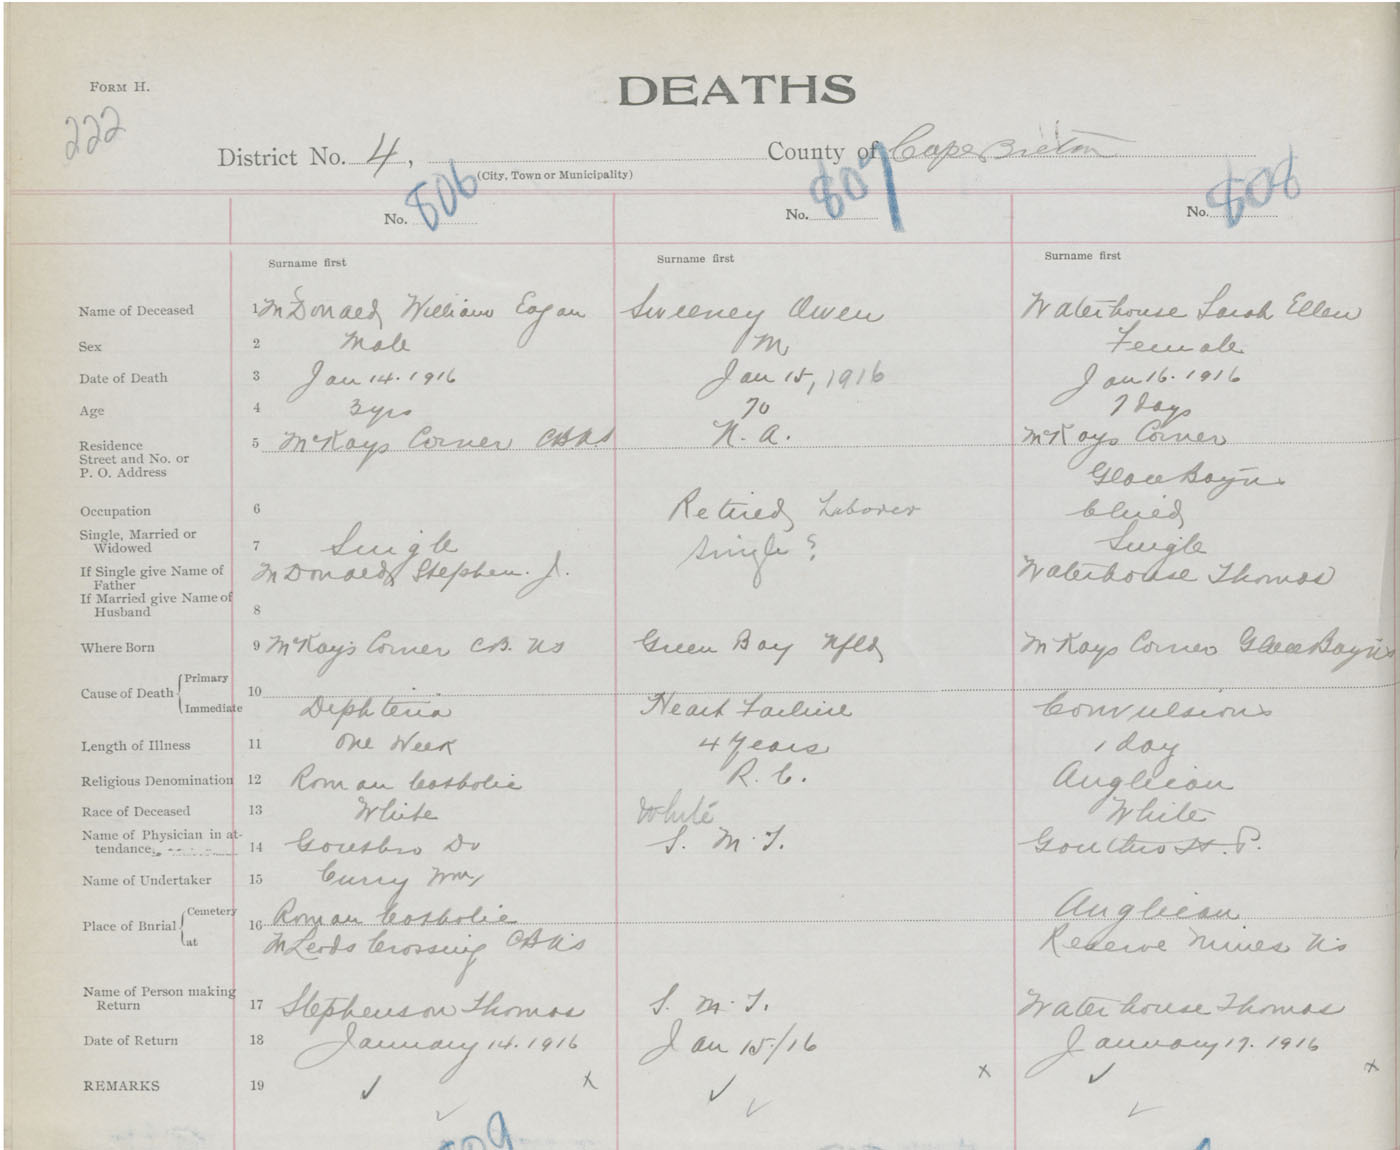 FORM H.
DEATHS
222
District No. 4, County of Cape Breton
(City, Town or Municipality)
No. 806 No. 807 No. 808
Surname first Surname first Surname first
Name of Deceased 1 McDonald William Sweeney Owen Waterhouse Sarah Ellen
Sex 2 Male M Female
Date of Death 3 Jan 14. 1916 Jan 15, 1916 Jan 16. 1916
Age 4 3 yrs 70 7 days
Residence 5 McKays Corner CB NS N. A. McKays Corner
Street and No. or
P. O. Address Glace Bay NS
Occupation 6 Retired Laborer Child
Single, Married or
Widowed 7 Single Single? Single
If Single give Name of
Father McDonald Stephen. J. Waterhouse Thomas
If Married give Name of
Husband 8
Where Born 9 McKays Corner CB. NS Green Bay Nfld McKays Corner Glace Bay NS
Cause of Death Primary 10
Immediate Diphteria Heart Failure Convulsions
Length of Illness 11 One Week 4 Years 1 day
Religious Denomination 12 Roman Catholic R. C. Anglican
Race of Deceased 13 White White White
Name of Physician in at-
tendance 14 Dr S. M. J.
Name of Undertaker 15 Curry Wm
Place of Burial Cemetery 16 Roman Catholic Anglican
at McLeods Crossing CB NS Reserve Mines NS
Name of Person making
Return 17 Stephenson Thomas S. M. J. Waterhouse Thomas
Date of Return 18 January 14. 1916 Jan 15/16 January 17. 1916
REMARKS 19 ✓ x ✓ x ✓ x
✓ ✓ ✓
809